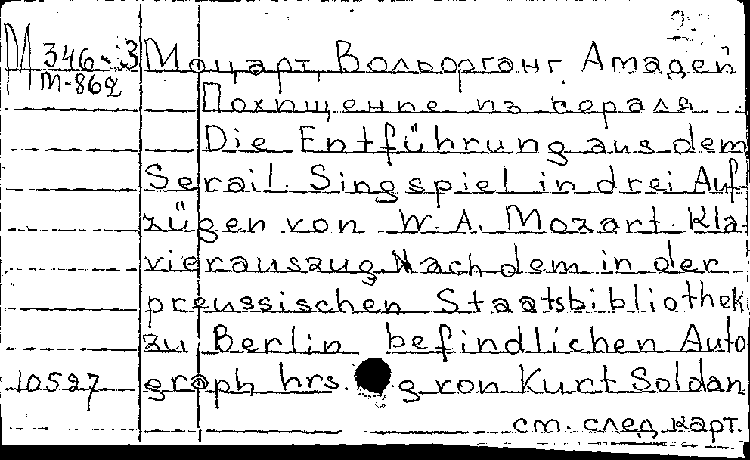 2
М 346-3 Моцарт, Вольфганг Амадей
М-862
Похищение из сераля
Die Entführung aus dem
Serail. Singspiel in drei Auf-
zügen von W. A. Mozart. Kla-
vierauszug. Nach dem in der
preussischen Staatsbibliothek
zu Berlin befindlichen Auto
10527 graph hrs. g von Kurt Soldan
см. след карт.